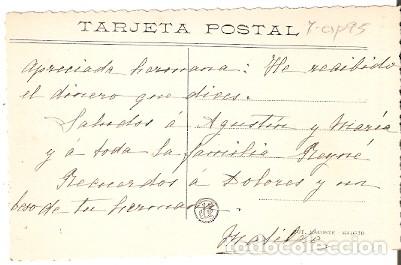 TARJETA POSTAL
Apreciada hermana: He recibido
el dinero que dices.
Saludos á Agustin y Maria
y a toda la familia Reyné
Recuerdos á Dolores y un
beso de tu hermana
Matilde
todocoleccion